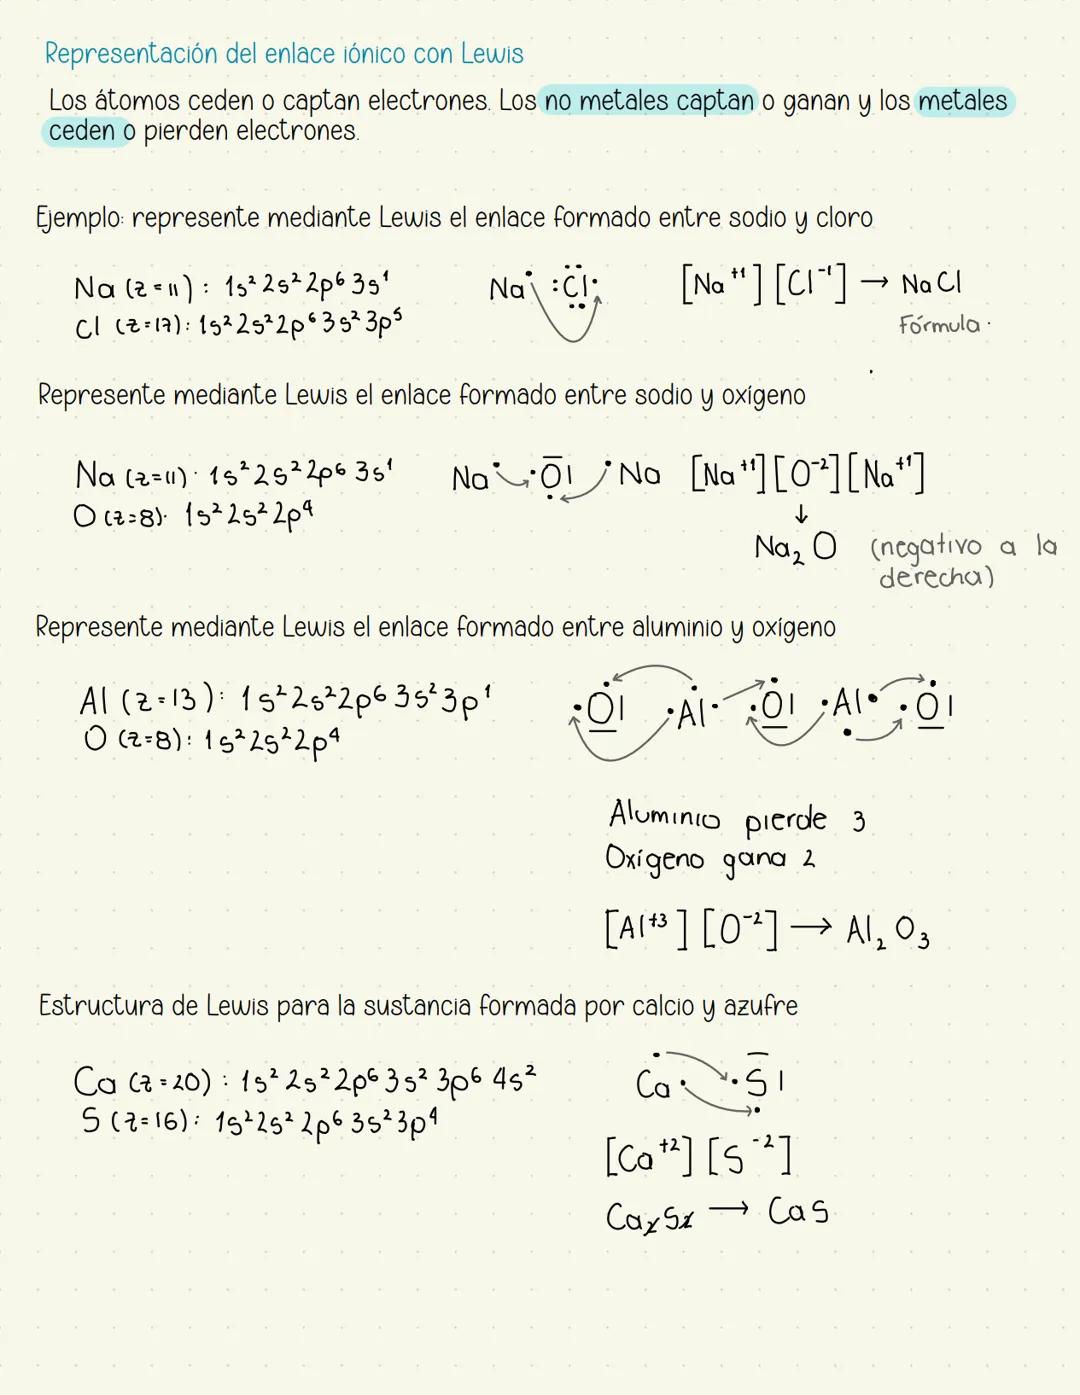 Representación del enlace iónico con Lewis
Los átomos ceden o captan electrones. Los no metales captan o ganan y los metales
ceden o pierden electrones.
Ejemplo: represente mediante Lewis el enlace formado entre sodio y cloro
Na (z=11): 1s² 2s² 2p⁶ 3s¹
Cl (z=17): 1s² 2s² 2p⁶ 3s² 3p⁵
Na· :Cl· [Na⁺¹] [Cl⁻¹] → NaCl
Fórmula.
Represente mediante Lewis el enlace formado entre sodio y oxígeno
Na (z=11): 1s² 2s² 2p⁶ 3s¹
O (z=8): 1s² 2s² 2p⁴
Na· ·O| ·Na [Na⁺¹] [O⁻²] [Na⁺¹]
↓
Na₂O (negativo a la
derecha)
Represente mediante Lewis el enlace formado entre aluminio y oxígeno
Al (z=13): 1s² 2s² 2p⁶ 3s² 3p¹
O (z=8): 1s² 2s² 2p⁴
·O| ·Al· ·O| ·Al· ·O|
Aluminio pierde 3
Oxígeno gana 2
[Al⁺³] [O⁻²] → Al₂O₃
Estructura de Lewis para la sustancia formada por calcio y azufre
Ca (z=20): 1s² 2s² 2p⁶ 3s² 3p⁶ 4s²
S (z=16): 1s² 2s² 2p⁶ 3s² 3p⁴
Ca· ·S|
[Ca⁺²] [S⁻²]
Ca₂S₂ → CaS